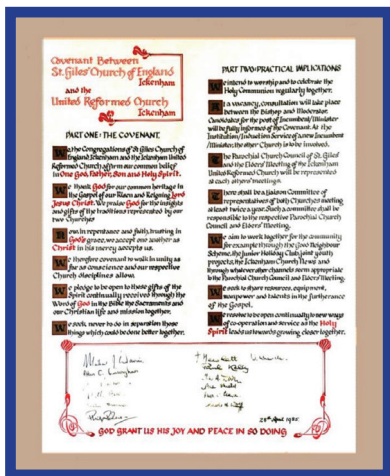 Covenant Between
St. Giles' Church of England
Ickenham
and the
United Reformed Church
Ickenham
PART ONE: THE COVENANT.
We, the Congregations of St Giles Church of
England Ickenham and the Ickenham United
Reformed Church, affirm our common belief
in One God, Father, Son and Holy Spirit.
We thank God for our common heritage in
the Gospel of our Risen and Reigning Lord
Jesus Christ. We praise God for the insights
and gifts of the traditions represented by our
two Churches
Now, in repentance and faith, trusting in
God's grace, we accept one another as
Christ in his mercy accepts us.
We therefore covenant to walk in unity as
far as conscience and our respective
Church disciplines allow.
We pledge to be open to those gifts of the
Spirit continually received through the
Word of God in the Bible the Sacraments and
our Christian life and mission together.
We seek never to do in separation those
things which could be done better together.
PART TWO: PRACTICAL IMPLICATIONS
We intend to worship and to celebrate the
Holy Communion regularly together.
At a vacancy, consultation will take place
between the Bishop and Moderator.
Candidates for the post of Incumbent/Minister
will be fully informed of the Covenant. At the
Institution/Induction Service of a new Incumbent
/Minister, the other Church is to be involved.
The Parochial Church Council of St. Giles
and the Elders' Meeting of the Ickenham
United Reformed Church will be represented
at each others' meetings.
There shall be a Liaison Committee of
representatives of both Churches meeting
at least twice a year. Such a committee shall be
responsible to the respective Parochial Church
Council and Elders' Meeting.
We aim to work together for the community
for example through the Good Neighbour
Scheme, the Junior Holiday Club, joint youth
projects, the Ickenham Church News and
through whatever other channels seem appropriate
to the Parochial Church Council and Elders' Meeting.
We seek to share resources, equipment,
manpower and talents in the furtherance
of the Gospel.
We resolve to be open continually to new ways
of co-operation and service as the Holy
Spirit leads us towards growing closer together.
28th April 1985
GOD GRANT US HIS JOY AND PEACE IN SO DOING